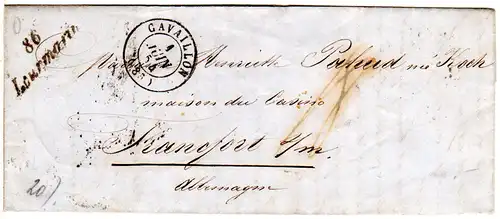 86
Lourmarin
CAVAILLON
1
JUIN
(86)
Henriette Pahud née Koch
maison du Casino
Francfort s/m.
Allemagne
20